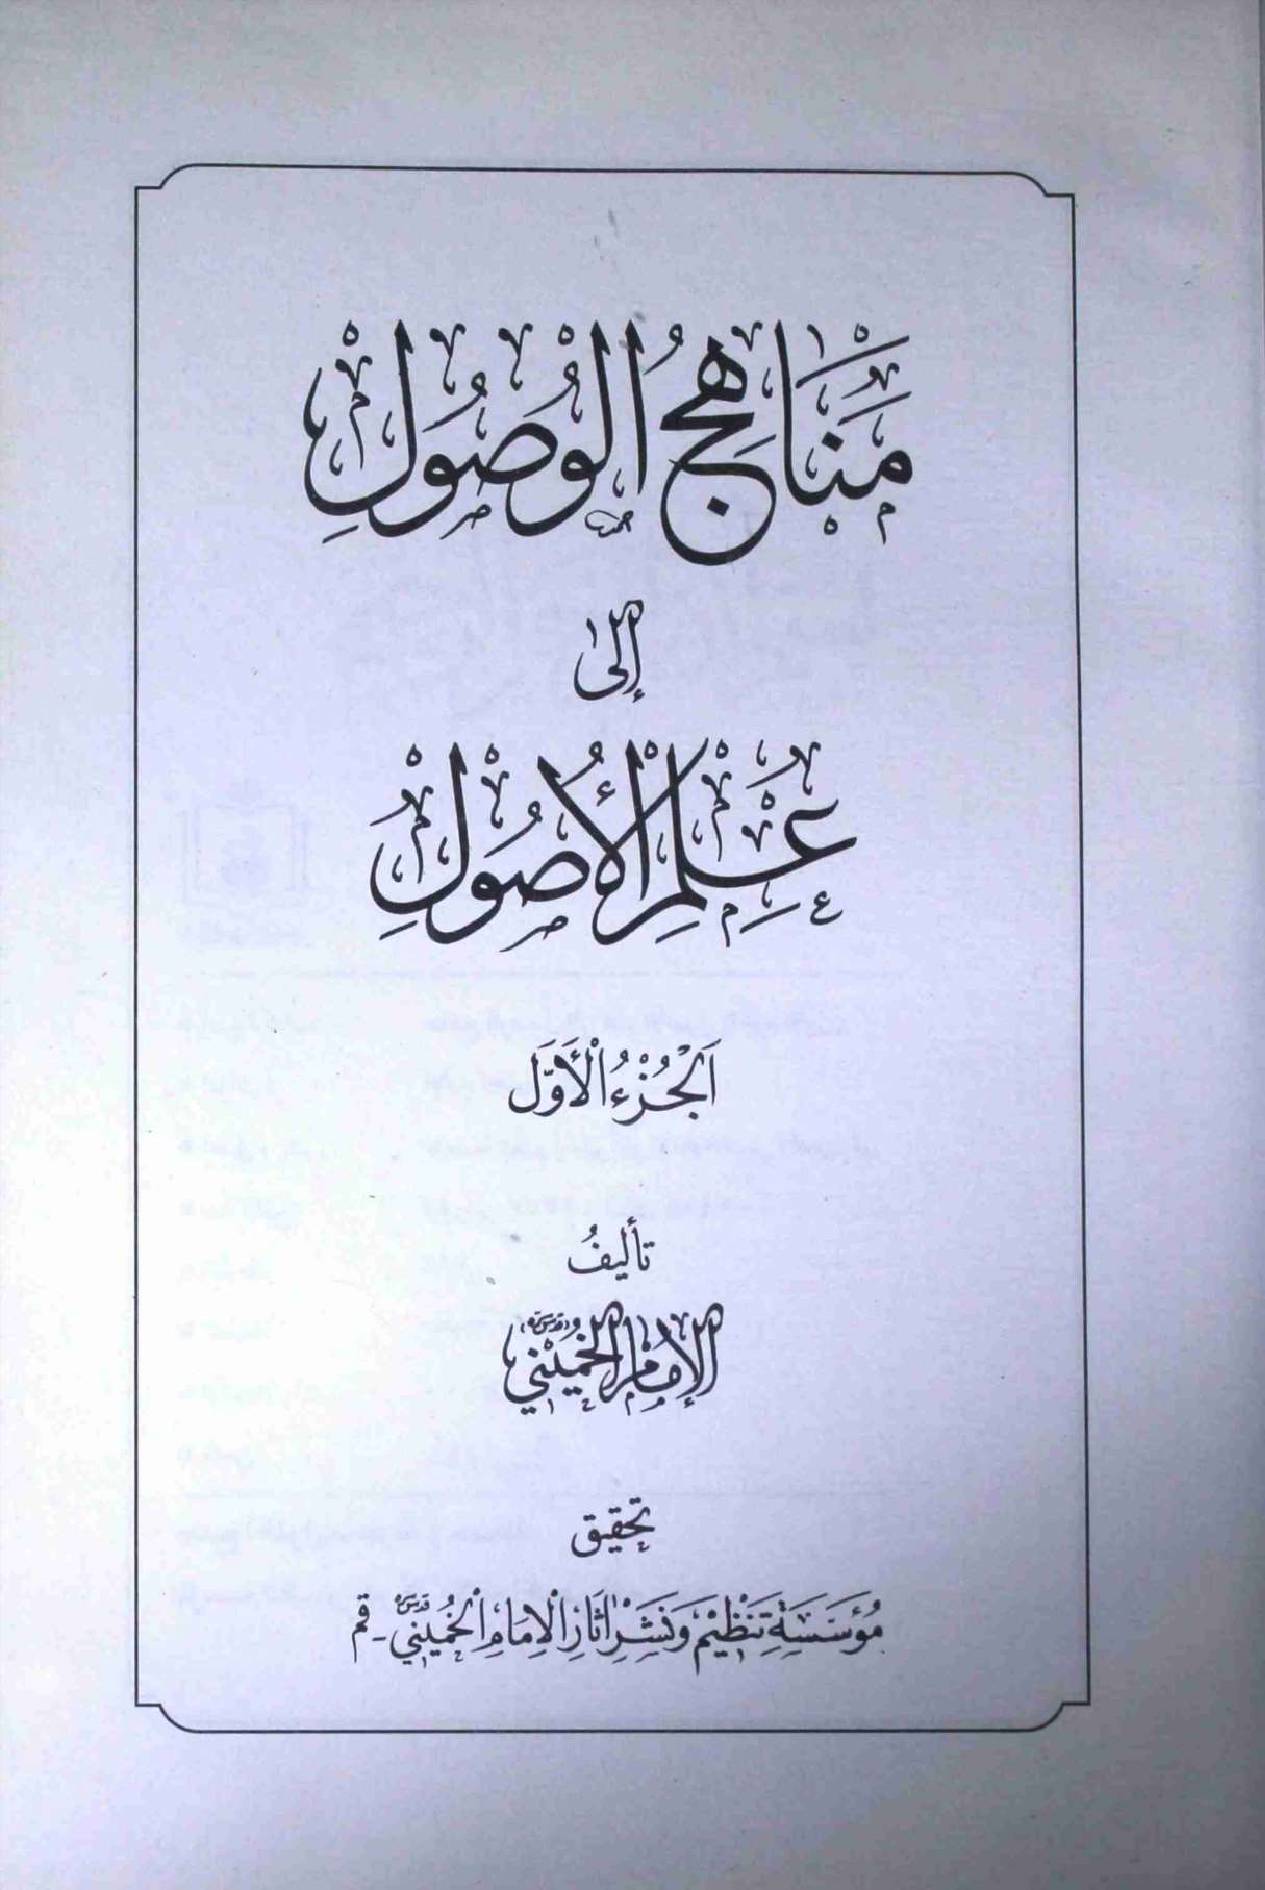 مَنَاهِجُ الْوُصُولِ
إِلىٰ
عِلْمِ الْأُصُولِ
اَلْجُزْءُ الْأَوَّلَ
تأليفُ
الإمام الخميني قدس سره
تحقيق
مُؤَسَسَةِ تَنْظِيمْ وَنَشْرِ آثَارِ الْإِمَامِ الْخُمَيْنِي قدس سره - قم